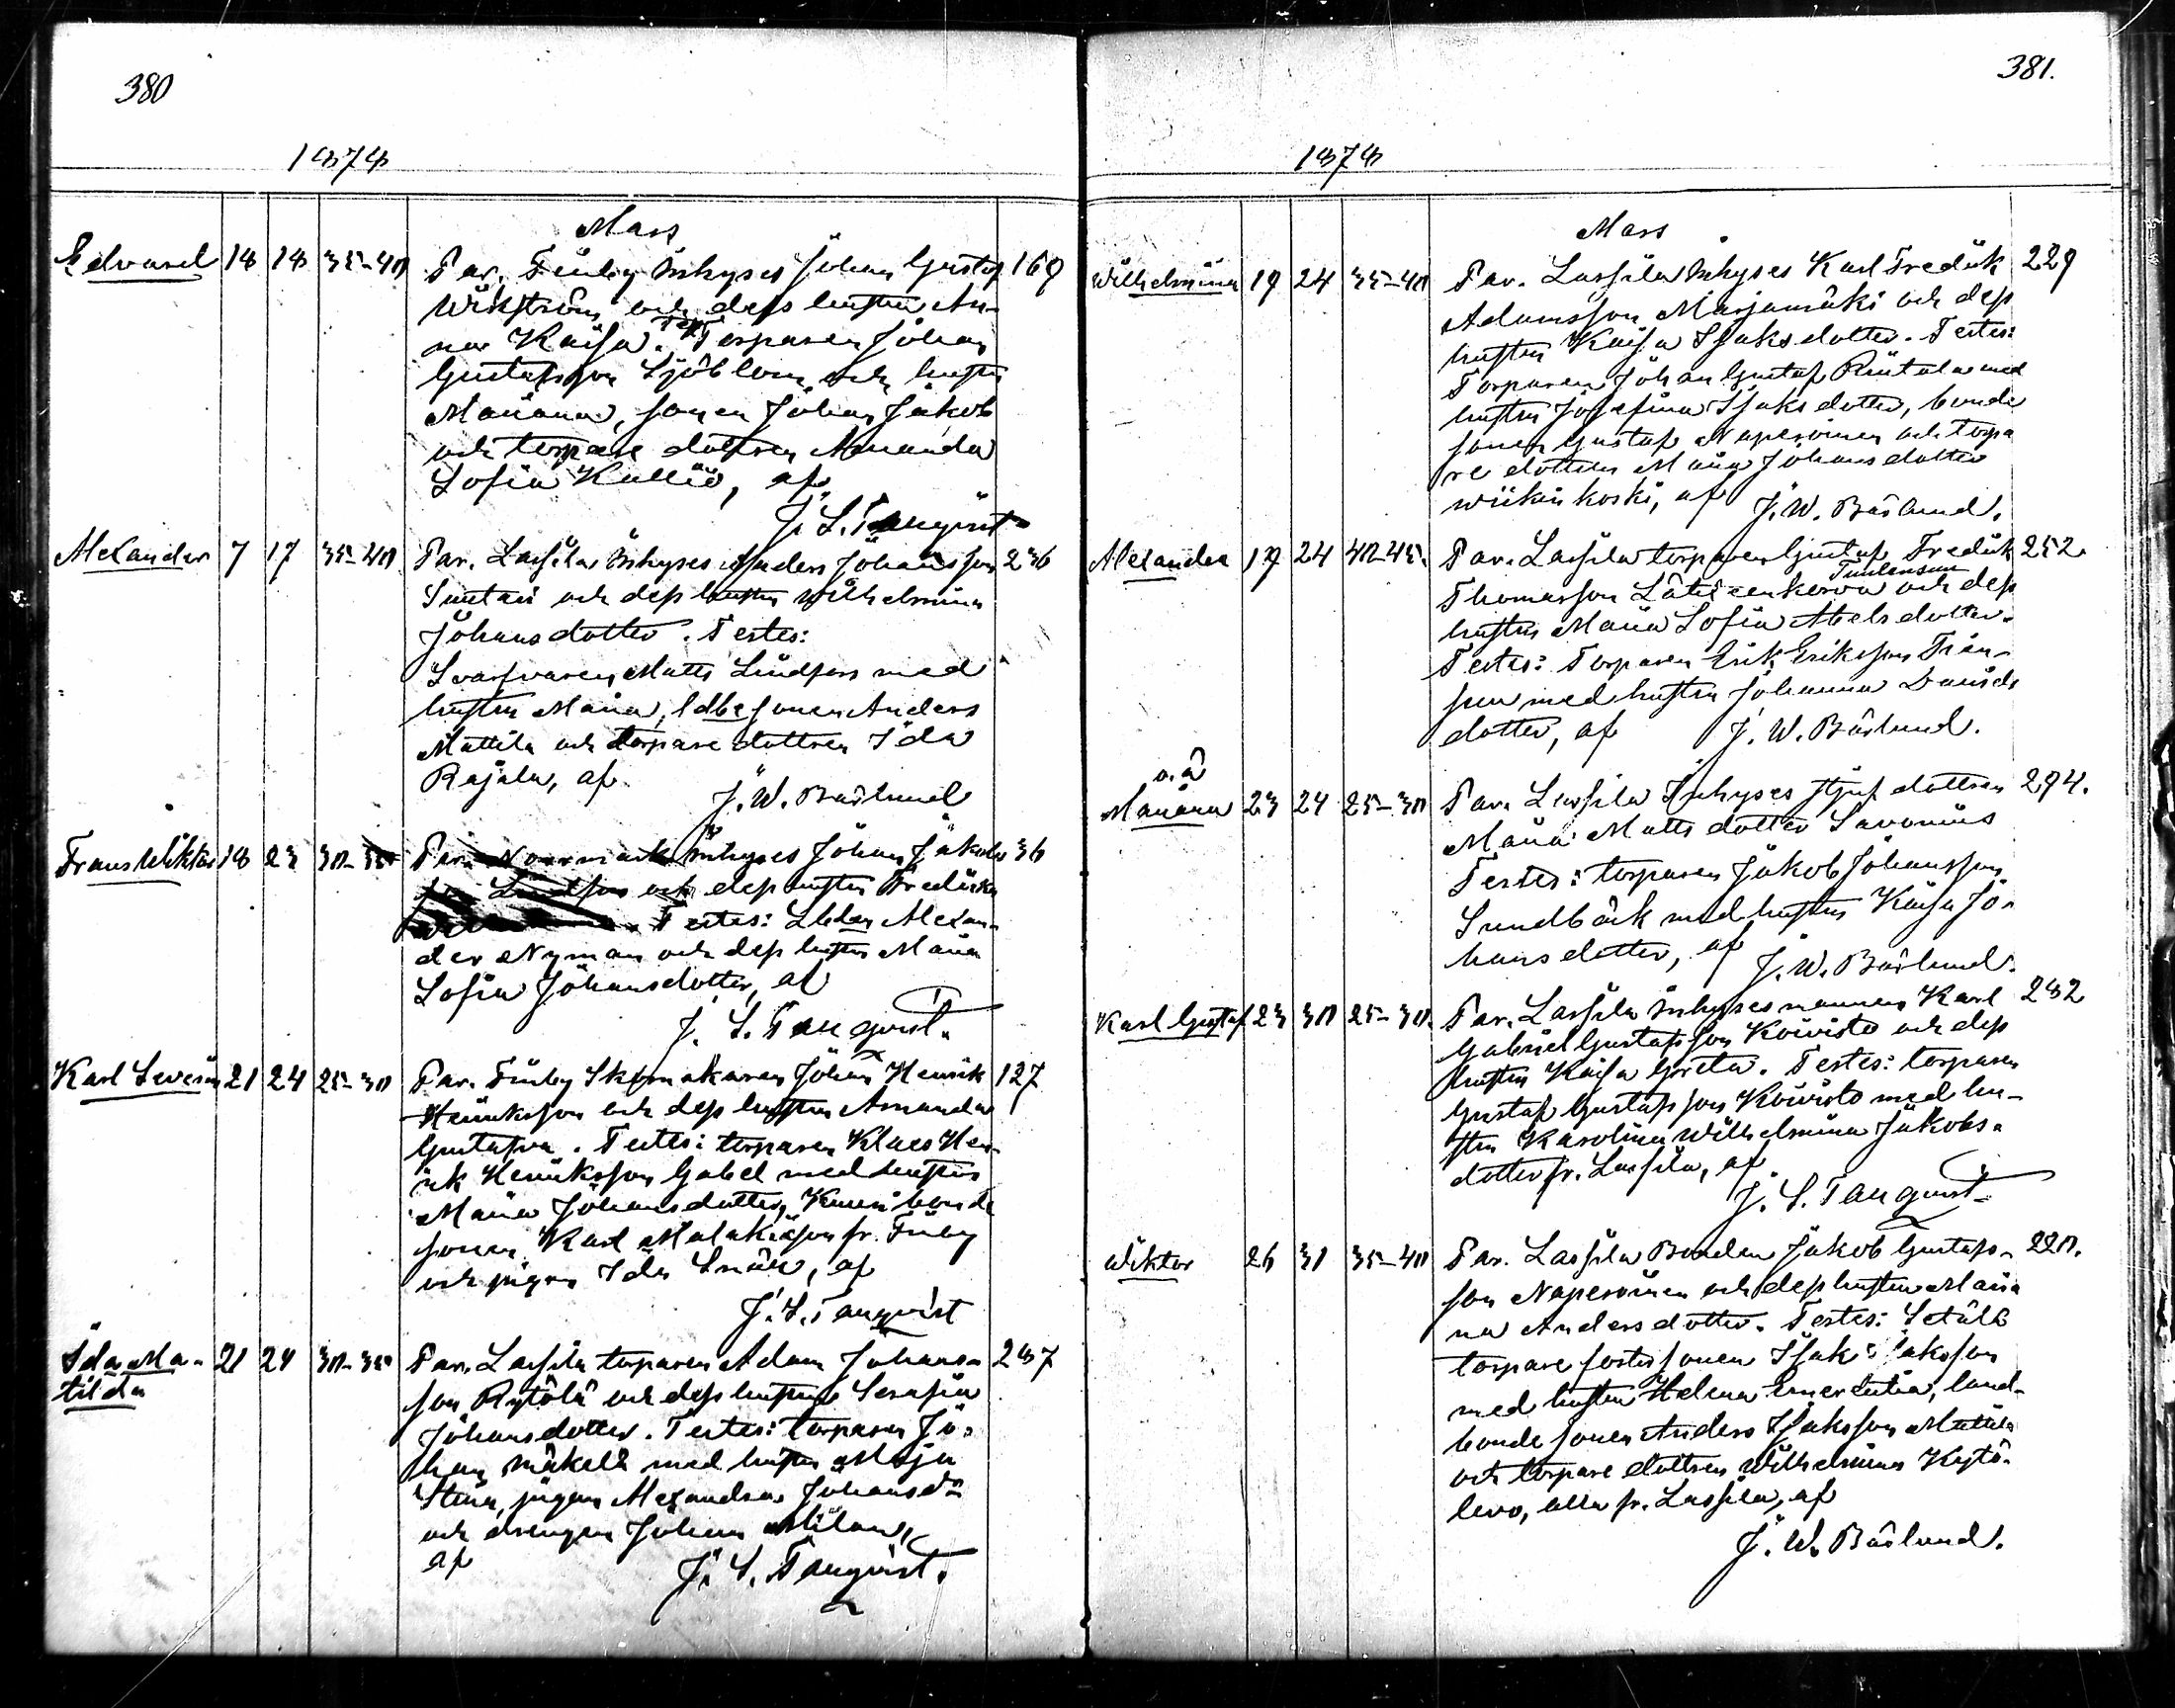 380
1878
Mars
Edvard 18 18 35-40 Par. Finby Inhyses Johan Gustaf 169
Wikström och dess hustru An-
na Kaisa. Test. Torparen Johan
Gustafsson Sjöblom och hustru
Mariana, sonen Johan Jakob
och torpare dottren Amanda
Sofia Kallio, af
J. S. Tanqvist
Alexander 7 17 35-40 Par. Lassila Inhyses Anders Johansson 236
Suutari och dess hustru Wilhelmina
Johansdotter. Testes:
Svarfvaren Matts Lindfors med
hustru Maria, ldbesonen Anders
Mattila och torpare dottren Ida
Rajala, af
J. W. Båslund
Frans Wiktor 18 23 30-35 Par. Norrmark Inhyses Johan Jakobs 36
Lindfors och dess hustru Fredrika
Testes: Lbdn Alexan-
der Nyman och dess hustru Maria
Sofia Johansdotter, af
J. S. Tanqvist.
Karl Severin 21 24 25-30 Par. Finby Skomakaren Johan Henrik 127
Henriksson och dess hustru Amanda
Gustafva. Testes: torparen Klaes Hen-
rik Henriksson Gabel med hustru
Maria Johansdotter, bonde
sonen Karl Malakiasson fr. Finby
och pigan Ida, af
J. S. Tanqvist
Ida Ma- 21 24 30-35 Par. Lassila torparen Adam Johans- 287
tilda
son Rytölä och dess hustru Serafia
Johansdotter. Testes: torparen Jo-
han Mäkelä med hustru Maja
Stina, pigan Alexandra Johansdr
och drengen Johan
af
J. S. Tanqvist.
381.
1878
Mars
Wilhelmina 19 24 35-40 Par. Lassila Inhyses Karl Fredrik 229
Adamsson Marjamäki och dess
hustru Kaisa Isaksdotter. Testes:
Torparen Johan Gustaf Rintala med
hustru Josefina Isaksdotter, bonde
sonen Gustaf Naperoinen och torpa
re dottren Maria Johansdotter
Wiikinkoski, af
J. W. Båslund.
Alexander 19 24 40-45. Par. Lassila torparen Gustaf Fredrik 252.
Tuulensuu
Thomasson Lähteenkorva och dess
hustru Maria Sofia Abelsdotter.
Testes: Torparen Erik Eriksson
med hustru Johanna Davids
dotter, af J. W. Båslund.
o.ä
Mariana 23 24 25-30 Par. Lassila Inhyses styf dottren 294.
Maria Matts dotter Savonius
Testes: torparen Jakob Johansson
Sundbäck med hustru Kaisa Jo-
hans dotter, af
J. W. Båslund.
Karl Gustaf 23 30 25-30. Par. Lassila Inhysesmannen Karl 282
Gabriel Gustafsson Koivisto och dess
hustru Kaisa Greta. Testes: torparen
Gustaf Gustafsson Koivisto med hu-
stru Karolina Wilhelmina Jakobs-
dotter fr. Lassila, af
J. S. Tanqvist
Wiktor 26 31 35-40 Par. Lassila Bonden Jakob Gustafs- 220.
son Naperoinen och dess hustru Maria
na Andersdotter. Testes: Setälä
torpare fostersonen Isak Isaksson
med hustru Helena Emerentia, land-
bonde sonen Anders Isaksson Mattila
och torpare dottren Wilhelmina Kytö-
levo, alla fr. Lassila, af
J. W. Båslund.